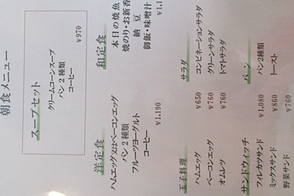 朝食メニュー
スープセット ¥970
クリームコーンスープ
パン2種類
コーヒー
和定食
本日の焼魚
焼のり・お新香
納豆
御飯・味噌汁
洋定食 ¥1,190
ハムエッグ又はベーコンエッグ
パン2種類
フルーツヨーグルト
コーヒー
サラダ
コンビネーションサラダ
グリーンサラダ
トマトサラダ
玉子料理
ハムエッグ ¥650
ベーコンエッグ ¥760
オムレツ ¥760
パン
パン2種類
トースト
サンドウィッチ
フィレカツサンド ¥1,080
ミックスサンド ¥860
野菜サンド ¥760